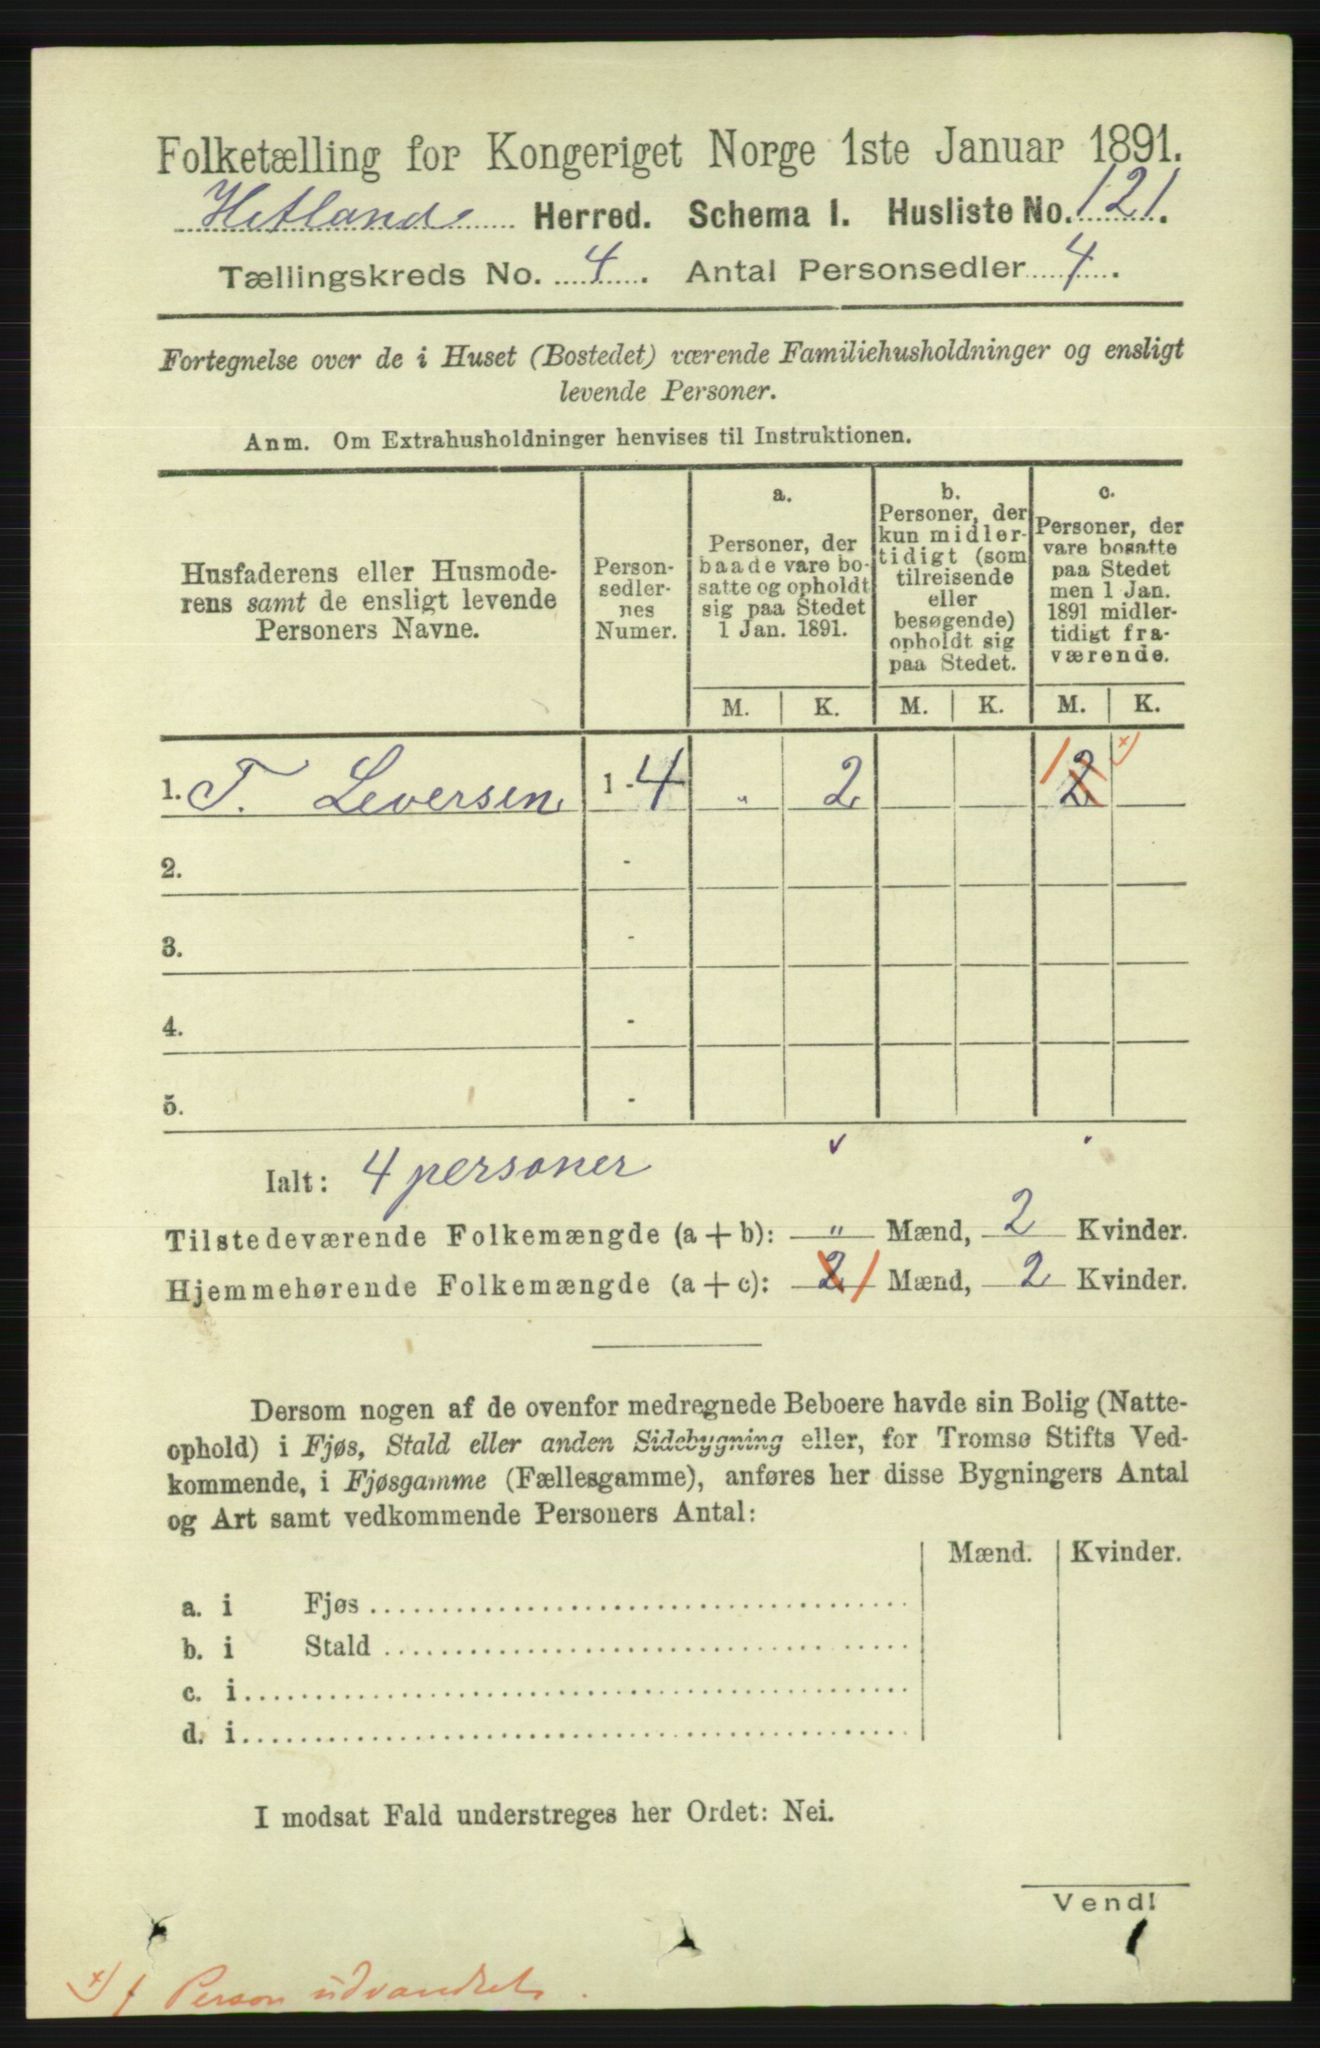 Folketælling for Kongeriget Norge 1ste Januar 1891.
Hetland Herred. Schema I. Husliste No. 121.
Tællingskreds No. 4. Antal Personsedler 4.
Fortegnelse over de i Huset (Bostedet) værende Familiehusholdninger og ensligt
levende Personer.
Anm. Om Extrahusholdninger henvises til Instruktionen.
Husfaderens eller Husmode-
rens samt de ensligt levende
Personers Navne.
Person-
sedler-
nes
Numer.
a.
Personer, der
baade vare bo-
satte og opholdt
sig paa Stedet
1 Jan. 1891.
b.
Personer, der
kun midler-
tidigt (som
tilreisende
eller
besøgende)
opholdt sig
paa Stedet.
c.
Personer, der
vare bosatte
paa Stedet
men 1 Jan.
1891 midler-
tidigt fra-
værende.
M. K. M. K. M. K.
1. T. Leversen 1 - 4 " 2 1 2 x)
2. -
3. -
4. -
5. -
Ialt: 4 personer
Tilstedeværende Folkemængde (a + b): " Mænd, 2 Kvinder.
Hjemmehørende Folkemængde (a + c): 2 1 Mænd, 2 Kvinder.
Dersom nogen af de ovenfor medregnede Beboere havde sin Bolig (Natte-
ophold) i Fjøs, Stald eller anden Sidebygning eller, for Tromsø Stifts Ved-
kommende, i Fjøsgamme (Fællesgamme), anføres her disse Bygningers Antal
og Art samt vedkommende Personers Antal:
Mænd. Kvinder.
a. i Fjøs
b. i Stald
c. i
d. i
I modsat Fald understreges her Ordet: Nei.
Vend!
x) 1 Person udvandret.